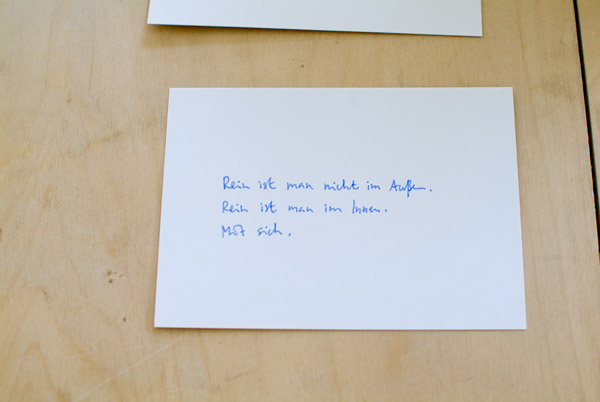 Rein ist man nicht im Außen.
Rein ist man im Innen.
Mit sich.